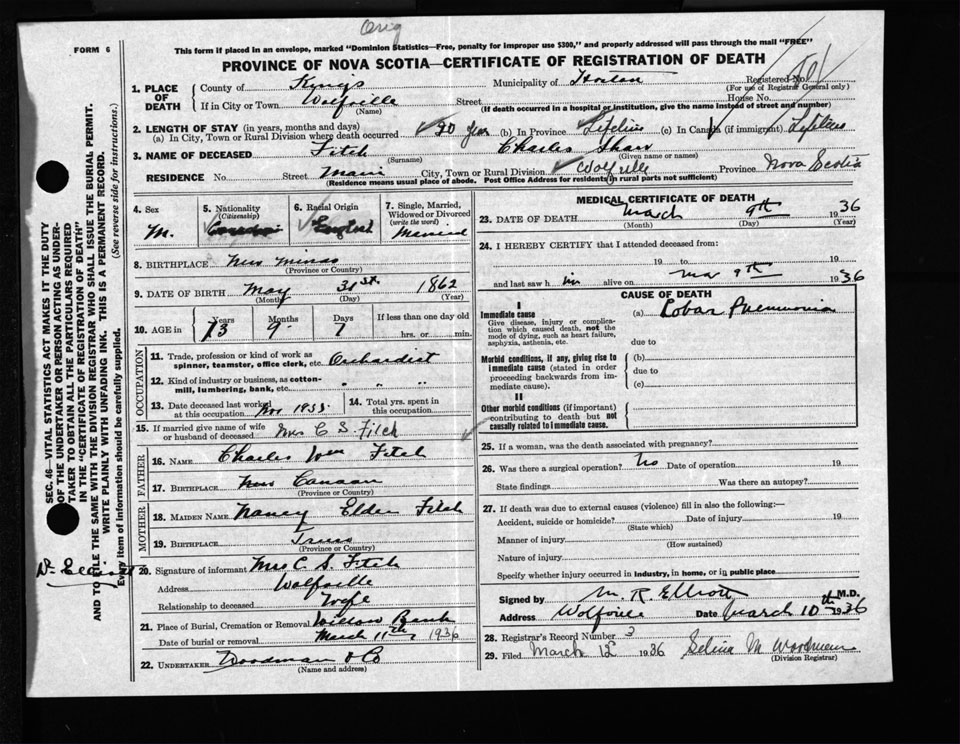 Orig
FORM 6
This form if placed in an envelope, marked "Dominion Statistics—Free, penalty for improper use $300," and properly addressed will pass through the mail "FREE"
PROVINCE OF NOVA SCOTIA—CERTIFICATE OF REGISTRATION OF DEATH
1. PLACE OF DEATH County of Kings Municipality of Horton Registered No.
(For use of Registrar General only)
If in City or Town Wolfville Street House No.
(Name) (If death occurred in a hospital or institution, give the name instead of street and number)
2. LENGTH OF STAY (in years, months and days)
(a) In City, Town or Rural Division where death occurred 20 years (b) In Province Lifetime (c) In Canada (if immigrant) Lifetime
3. NAME OF DECEASED Fitch Charles Shaw
(Surname) (Given name or names)
RESIDENCE No. Street Main City, Town or Rural Division Wolfville Province Nova Scotia
(Residence means usual place of abode. Post Office Address for residents in rural parts not sufficient)
4. Sex 5. Nationality (Citizenship) 6. Racial Origin 7. Single, Married, Widowed or Divorced (write the word)
M. Canadian English Married
8. BIRTHPLACE New Minas
(Province or Country)
9. DATE OF BIRTH May 31st 1862
(Month) (Day) (Year)
10. AGE in Years Months Days If less than one day old
73 9 7 hrs. or min.
OCCUPATION
11. Trade, profession or kind of work as spinner, teamster, office clerk, etc. Orchardist
12. Kind of industry or business, as cotton-mill, lumbering, bank, etc. " " "
13. Date deceased last worked at this occupation Nov 1935 14. Total yrs. spent in this occupation
15. If married give name of wife or husband of deceased Mrs C S Fitch
FATHER
16. NAME Charles Wm Fitch
17. BIRTHPLACE New Canaan
(Province or Country)
MOTHER
18. MAIDEN NAME Nancy Elder Fitch
19. BIRTHPLACE Truro
(Province or Country)
20. Signature of informant Mrs C. S. Fitch
Address Wolfville
Relationship to deceased Wife
21. Place of Burial, Cremation or Removal Willow Bank
Date of burial or removal March 11th 1936
22. UNDERTAKER Woodman & Co
(Name and address)
MEDICAL CERTIFICATE OF DEATH
23. DATE OF DEATH March 9th 1936
(Month) (Day) (Year)
24. I HEREBY CERTIFY that I attended deceased from:
19 to 19
and last saw h im alive on Mar 9th 1936
CAUSE OF DEATH
I
Immediate cause (a) Lobar Pneumonia
Give disease, injury or complication which caused death, not the mode of dying, such as heart failure, asphyxia, asthenia, etc.
due to
Morbid conditions, if any, giving rise to immediate cause (stated in order proceeding backwards from immediate cause).
(b)
due to
(c)
II
Other morbid conditions (if important) contributing to death but not causally related to immediate cause.
25. If a woman, was the death associated with pregnancy?
26. Was there a surgical operation? No Date of operation 19
State findings Was there an autopsy?
27. If death was due to external causes (violence) fill in also the following:—
Accident, suicide or homicide? Date of injury 19
(State which)
Manner of injury
(How sustained)
Nature of injury
Specify whether injury occurred in industry, in home, or in public place
Signed by M. R Elliott M.D.
Address Wolfville Date March 10th 1936
28. Registrar's Record Number 3
29. Filed March 12 1936 Selina M Woodman
(Division Registrar)
SEC. 46—VITAL STATISTICS ACT MAKES IT THE DUTY
OF THE UNDERTAKER OR PERSON ACTING AS UNDER-
TAKER TO OBTAIN ALL THE PARTICULARS REQUIRED
IN THE "CERTIFICATE OF REGISTRATION OF DEATH"
AND TO FILE THE SAME WITH THE DIVISION REGISTRAR WHO SHALL ISSUE THE BURIAL PERMIT.
WRITE PLAINLY WITH UNFADING INK. THIS IS A PERMANENT RECORD.
Every item of information should be carefully supplied. (See reverse side for instructions.)
Dr. Elliott